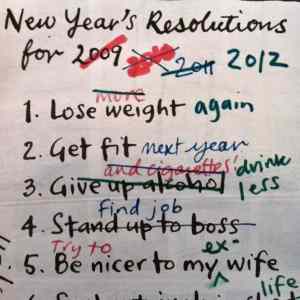 New Year's Resolutions
for 2009 2011 2012
more
1. Lose weight again
2. Get fit next year
and cigarettes! drink
3. Give up alcohol less
find job
4. Stand up to boss
Try to ex-
5. Be nicer to my wife
life